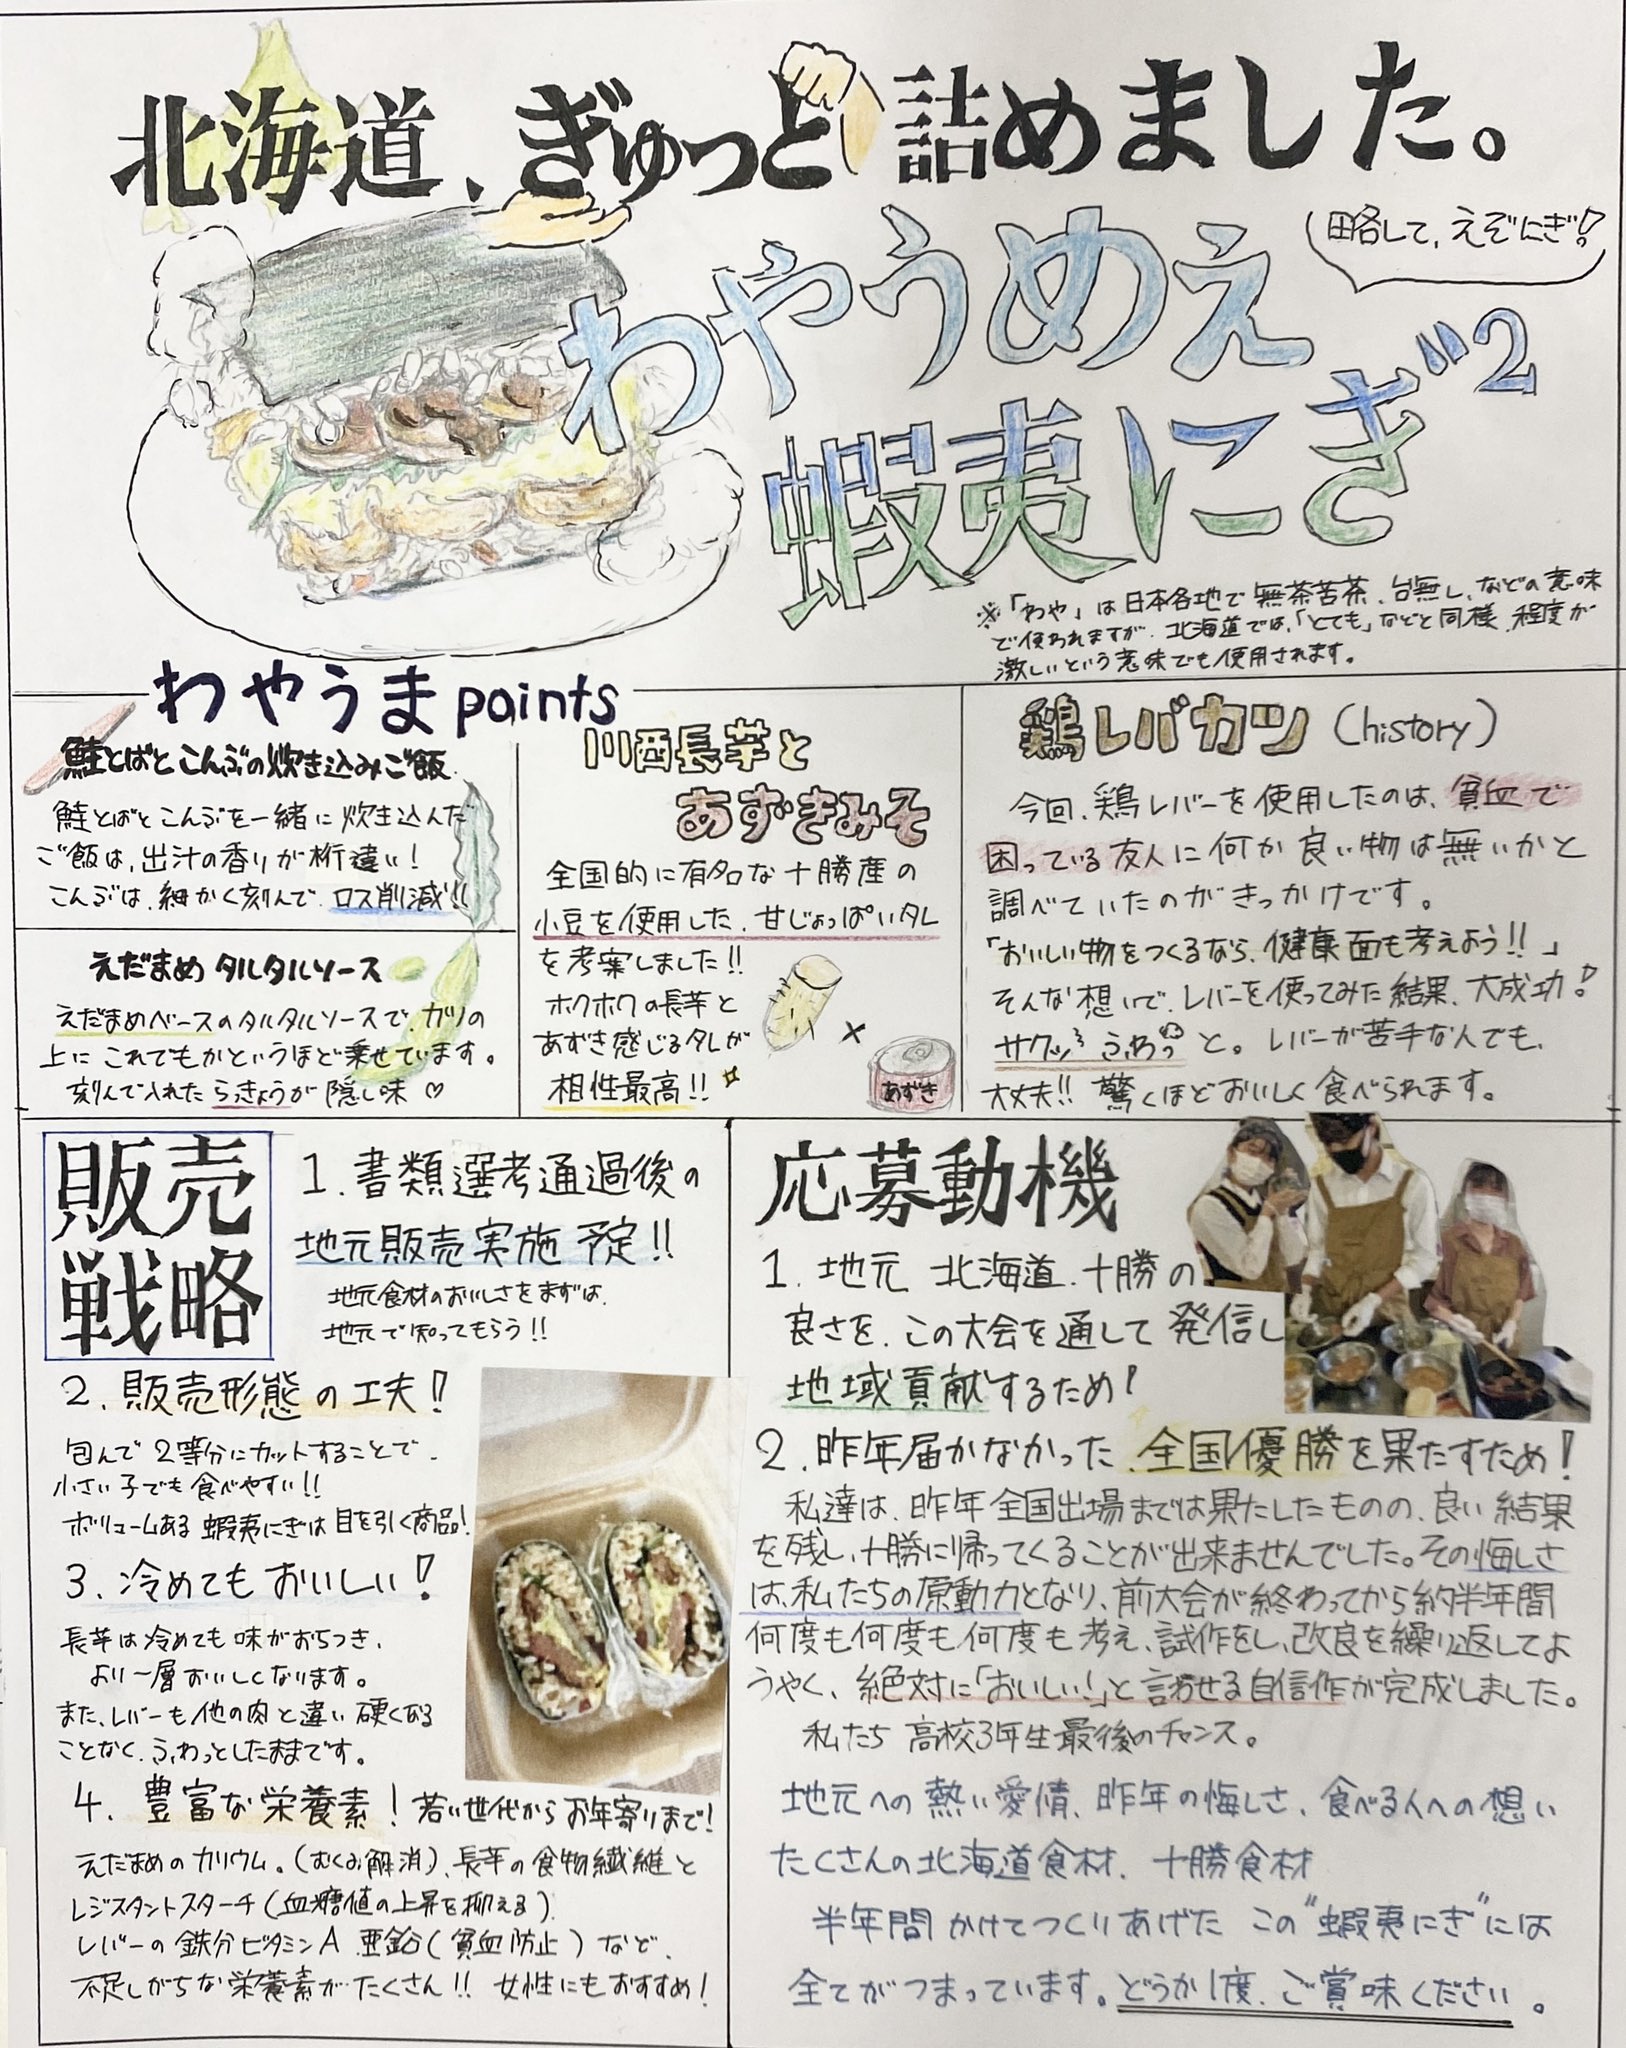 北海道、ぎゅっと詰めました。
わやうめえ
蝦夷にぎ"2
略して、えぞにぎ!
※「わや」は日本各地で無茶苦茶、台無し、などの意味
で使われますが、北海道では、「とても」などと同様、程度が
激しいという意味でも使用されます。
わやうまpoints
鮭とばとこんぶの炊き込みご飯
鮭とばとこんぶを一緒に炊き込んだ
ご飯は、出汁の香りが桁違い!
こんぶは、細かく刻んで、ロス削減!!
えだまめタルタルソース
えだまめベースのタルタルソースで、カツの
上にこれでもかというほど乗せています。
刻んで入れたらっきょうが隠し味♡
川西長芋と
あずきみそ
全国的に有名な十勝産の
小豆を使用した、甘じょっぱいタレ
を考案しました!!
ホクホクの長芋と
あずき感じるタレが
相性最高!!
×
あずき
鶏レバカツ(history)
今回、鶏レバーを使用したのは、貧血で
困っている友人に何か良い物は無いかと
調べていたのがきっかけです。
「おいしい物をつくるなら、健康面も考えよう!!」
そんな想いで、レバーを使ってみた結果、大成功!
サクッふわっと。レバーが苦手な人でも、
大丈夫!! 驚くほどおいしく食べられます。
販売
戦略
1.書類選考通過後の
地元販売実施予定!!
地元食材のおいしさをまずは、
地元で知ってもらう!!
2.販売形態の工夫!
包んで2等分にカットすることで、
小さい子でも食べやすい!!
ボリュームある蝦夷にぎは目を引く商品!
3.冷めてもおいしい!
長芋は冷めても味がおちつき、
より一層おいしくなります。
また、レバーも他の肉と違い硬くなる
ことなく、ふわっとしたままです。
4.豊富な栄養素! 若い世代からお年寄りまで!
えだまめのカリウム。(むくみ解消)、長芋の食物繊維と
レジスタントスターチ(血糖値の上昇を抑える)、
レバーの鉄分ビタミンA 亜鉛(貧血防止)など、
不足しがちな栄養素がたくさん!! 女性にもおすすめ!
応募動機
1.地元 北海道、十勝の
良さを、この大会を通して発信し
地域貢献するため!
2.昨年届かなかった、全国優勝を果たすため!
私達は、昨年全国出場までは果たしたものの、良い結果
を残し、十勝に帰ってくることが出来ませんでした。その悔しさ
は、私たちの原動力となり、前大会が終わってから約半年間
何度も何度も何度も考え、試作をし、改良を繰り返してよ
うやく、絶対に「おいしい!」と言わせる自信作が完成しました。
私たち 高校3年生最後のチャンス。
地元への熱い愛情、昨年の悔しさ、食べる人への想い
たくさんの北海道食材、十勝食材
半年間かけてつくりあげた この"蝦夷にぎ"には
全てがつまっています。どうか1度、ご賞味ください。